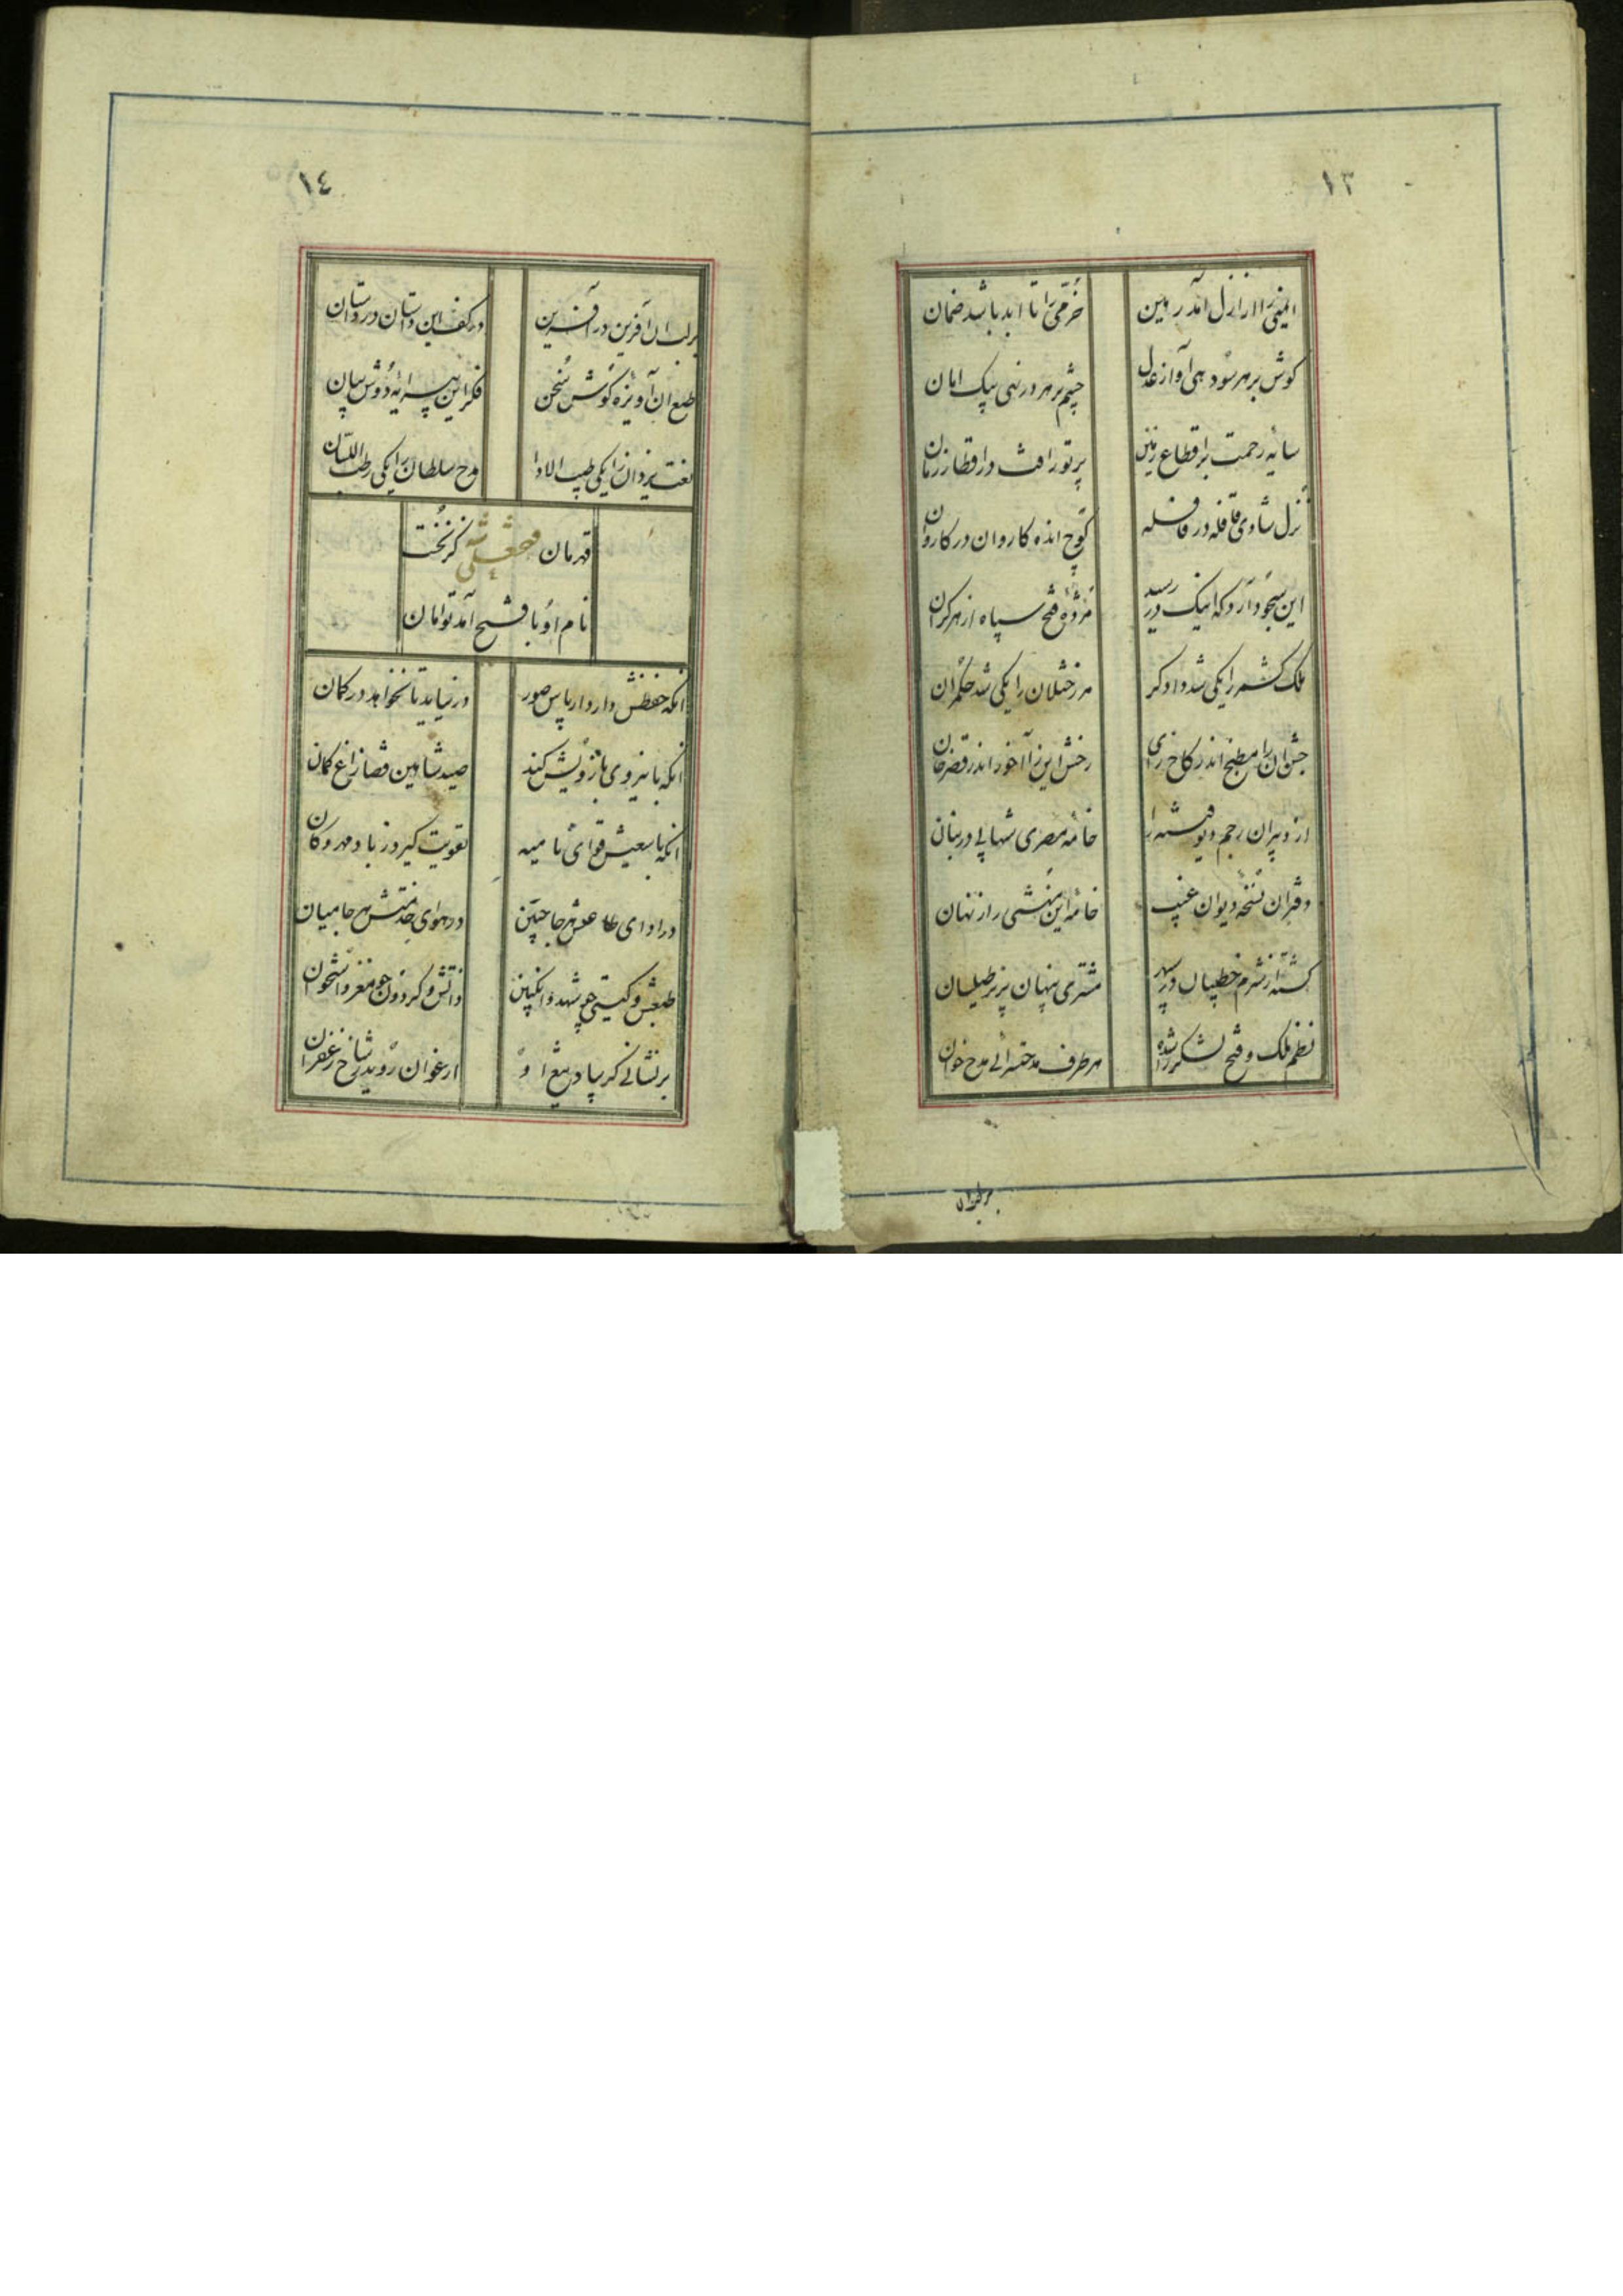 ١٣
ایمنی را از ازل آمد رهین
خرمی را تا ابد باشد ضمان
کوش بر هر سو دهی آواز عدل
چشم بر هر در نهی پیک امان
سایه رحمت بر اقطاع زمین
پرتو رافت در اقطار زمان
نزل شادی قافله در قافله
کوچ انده کاروان در کاروان
این سجود آرد که اینک در رسید
مژده فتح سپاه از هر کران
ملک کشمر را یکی شد دادکر
مرز ختلان را یکی شد حکمران
جشن آن را مطبخ اندر کاخ رای
رخش این را آخور اندر قصر خان
از دبیران رجم دیو فتنه را
خامه مصری شهابی در بنان
دفتر آن نسخه دیوان غیب
خامه این منشی راز نهان
کشته از شرم خطیبان در سپهر
مشتری پنهان بزیر طیلسان
نظم ملک و فتح لشکر را شده
هر طرف مدحتسرائی مدح خوان
بر لب آن
١٤
بر لب آن آفرین در آفرین
در کف این داستان در داستان
طبع آن آویزه کوش سخن
فکر این پیرایه دوش بیان
نعت یزدان را یکی طیب الادا
مدح سلطان را یکی رطب اللسان
قهرمان فتحعلی شه کز نخست
نام او با فتح آمد توامان
آنکه حفظش دارد ار پاس صور
در نیاید تا نخواهد در کمان
آنکه با نیروی بازویش کند
صید شاهین قضا زاغ کمان
آنکه با سعیش قوای نامیه
تقویت کیرد ز باد مهرکان
در ادای طاعتش هر جا جبین
در هوای خدمتش هر جا میان
طبعش و کیتی چو شهد و انکبین
دانش و کردون چو مغز و استخوان
بر نشانی کر بیاد تیغ او
ارغوان روید ز شاخ زعفران